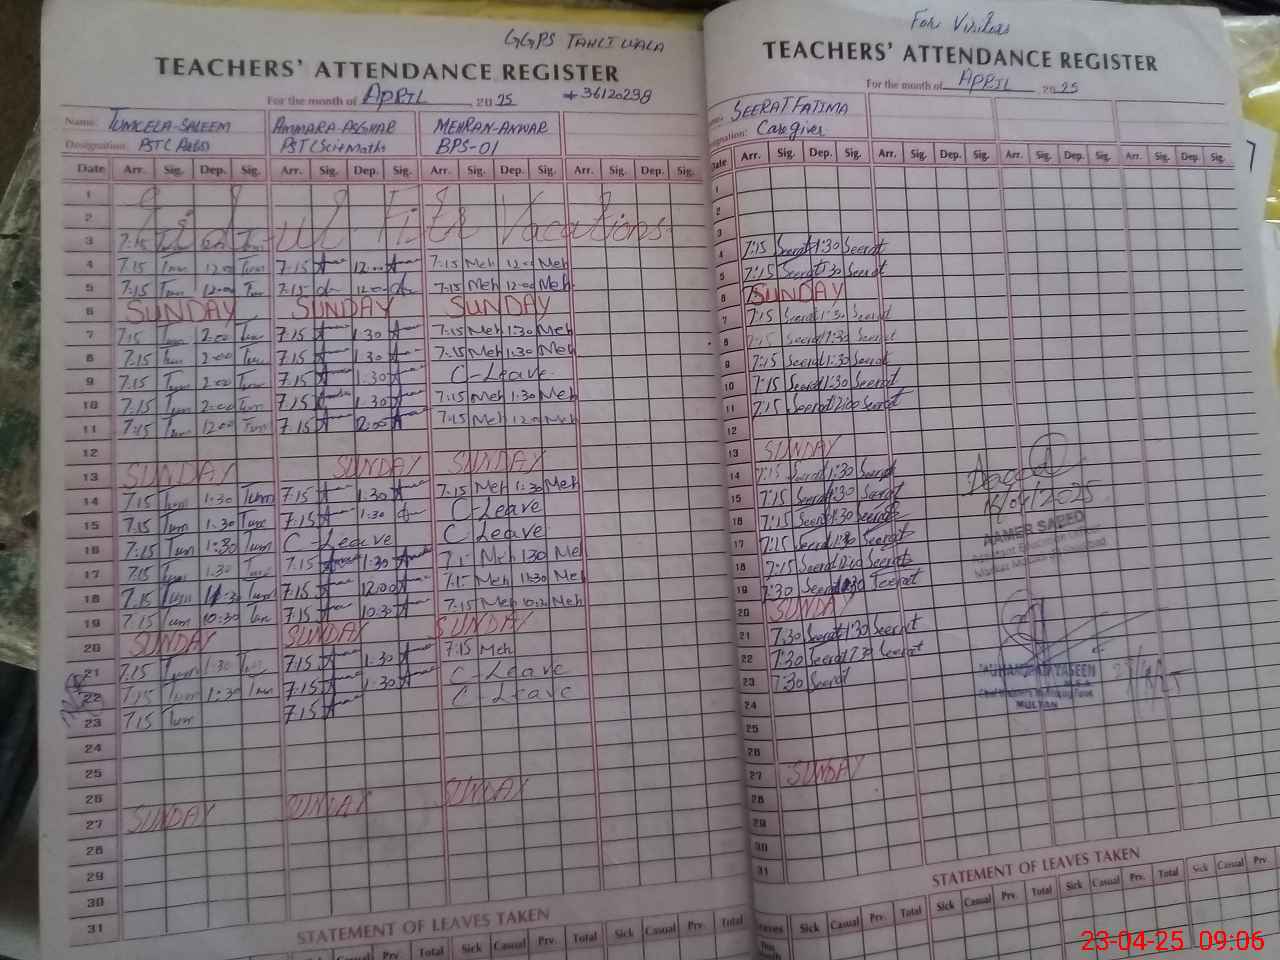 GGPS TAHLIWALA
TEACHERS' ATTENDANCE REGISTER
For the month of APRIL, 2025 *36120298
Name: TUMEELA-SALEEM AMMARA ASGHAR MEHRAN-ANWAR
Designation: PST (Arts) PST (Sci+Math) BPS-01
Date Arr. Sig. Dep. Sig. Arr. Sig. Dep. Sig. Arr. Sig. Dep. Sig. Arr. Sig. Dep. Sig.
1
2 Eid ul Fitr Vacations
3 7:15
4 7:15 Tum 12:00 Tum 7:15 12:00 7:15 Meh 12:00 Meh
5 7:15 Tum 12:00 Tum 7:15 12:00 7:15 Meh 12:00 Meh
6 SUNDAY SUNDAY SUNDAY
7 7:15 Tum 2:00 Tum 7:15 1:30 7:15 Meh 1:30 Meh
8 7:15 Tum 2:00 Tum 7:15 1:30 7:15 Meh 1:30 Meh
9 7:15 Tum 2:00 Tum 7:15 1:30 C-Leave
10 7:15 Tum 2:00 Tum 7:15 1:30 7:15 Meh 1:30 Meh
11 7:15 Tum 12:00 Tum 7:15 7:15 Meh 12:00 Meh
12
13 SUNDAY SUNDAY SUNDAY
14 7:15 Tum 1:30 Tum 7:15 1:30 7:15 Meh 1:30 Meh
15 7:15 Tum 1:30 Tum 7:15 1:30 C-Leave
16 7:15 Tum 1:30 Tum C-Leave C-Leave
17 7:15 Tum 1:30 Tum 7:15 1:30 Meh 1:30 Meh
18 7:15 Tum Tum 7:15 12:00 Meh Meh
19 7:15 Tum 10:30 Tum 7:15 10:30 7:15 Meh 10:30 Meh
20 SUNDAY SUNDAY SUNDAY
21 7:15 Tum 1:30 Tum 7:15 1:30 7:15 Meh
22 7:15 Tum 1:30 Tum 7:15 1:30 C-Leave
23 7:15 Tum 7:15 C-Leave
24
25
26
27 SUNDAY SUNDAY SUNDAY
28
29
30
31
STATEMENT OF LEAVES TAKEN
Prv. Total Sick Casual Prv. Total Sick Casual Prv. Total
For Visitors
TEACHERS' ATTENDANCE REGISTER
For the month of APRIL, 2025
SEERAT FATIMA
Designation: Caregiver
Date Arr. Sig. Dep. Sig. Arr. Sig. Dep. Sig. Arr. Sig. Dep. Sig. Arr. Sig. Dep. Sig.
1
2
3
4 7:15 Seerat 1:30 Seerat
5 7:15 Seerat 1:30 Seerat
6 SUNDAY
7 7:15 Seerat 1:30 Seerat
8 7:15 Seerat 1:30 Seerat
9 7:15 Seerat 1:30 Seerat
10 7:15 Seerat 1:30 Seerat
11 7:15 Seerat 12:00 Seerat
12
13 SUNDAY
14 7:15 Seerat 1:30 Seerat
15 7:15 Seerat 1:30 Seerat
16 7:15 Seerat 1:30 Seerat
17 7:15 Seerat 1:30 Seerat
18 7:15 Seerat 12:00 Seerat
19 7:30 Seerat Seerat
20 SUNDAY
21 7:30 Seerat 1:30 Seerat
22 7:30 Seerat 1:30 Seerat
23 7:30 Seerat
24
25
26
27 SUNDAY
28
29
30
31
16/04/2025
AAMER SAEED
Assistant Education Officer
MUHAMMAD YASEEN
MULTAN
STATEMENT OF LEAVES TAKEN
Leaves Sick Casual Prv. Total Sick Casual Prv. Total Sick Casual Prv. Total Sick Casual Prv.
23-04-25 09:06